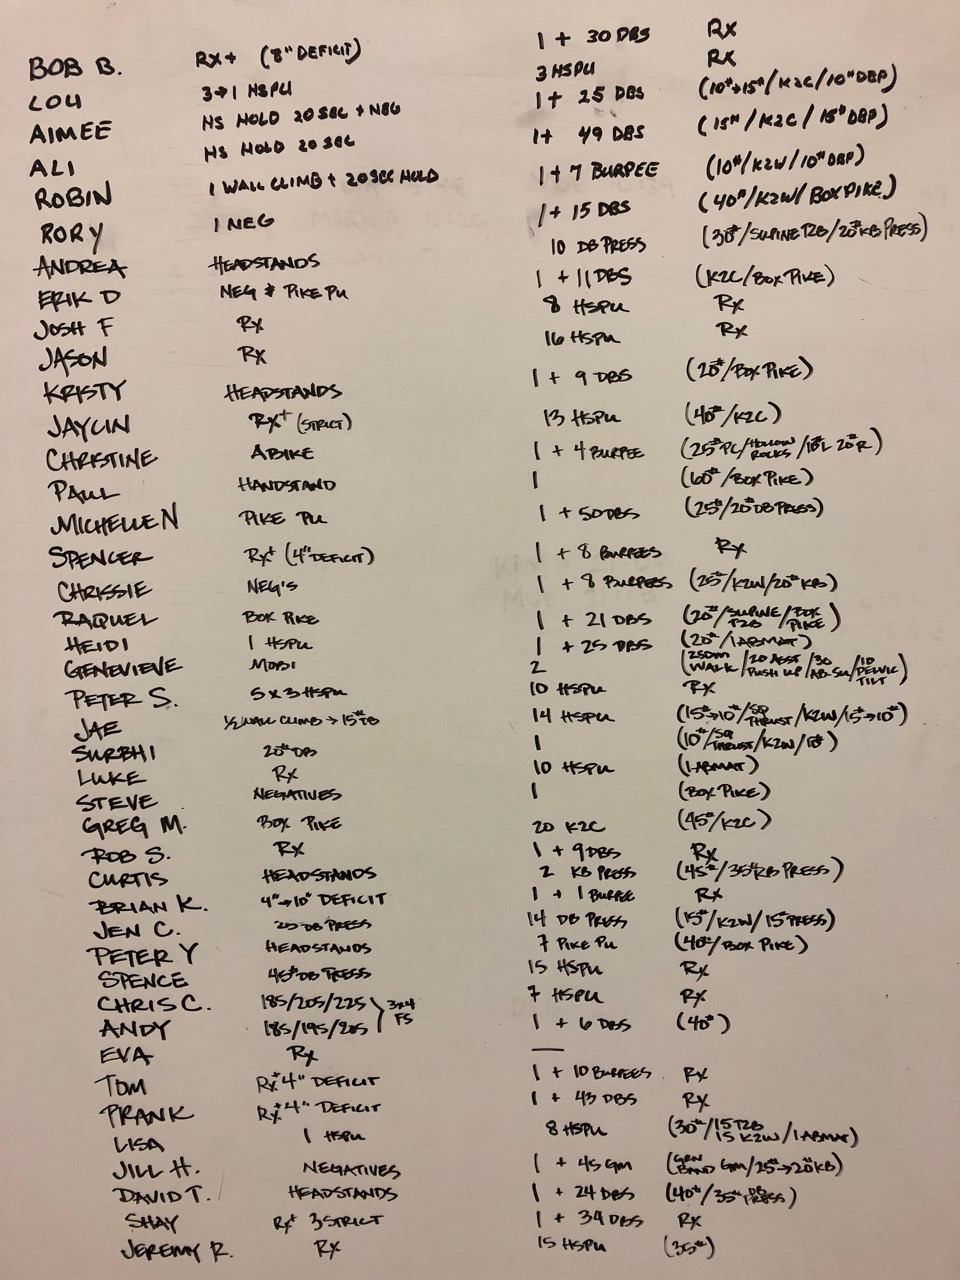 BOB B. RX+ (8" DEFICIT) 1 + 30 DBS RX
LOU 3→1 HSPU 3 HSPU RX
AIMEE HS HOLD 20 SEC + NEG 1 + 25 DBS (10#→15#/K2C/10# DBP)
ALI HS HOLD 20 SEC 1 + 49 DBS (15#/K2C/15# DBP)
ROBIN 1 WALL CLIMB + 20 SEC HOLD 1 + 7 BURPEE (10#/K2W/10# DBP)
RORY 1 NEG 1 + 15 DBS (40#/K2W/BOX PIKE)
ANDREA HEADSTANDS 10 DB PRESS (30#/SUPINE T2B/20# KB PRESS)
ERIK D NEG & PIKE PU 1 + 11 DBS (K2C/BOX PIKE)
JOSH F RX 8 HSPU RX
JASON RX 16 HSPU RX
KRISTY HEADSTANDS 1 + 9 DBS (25#/BOX PIKE)
JAYLIN RX+ (STRICT) 13 HSPU (40#/K2C)
CHRISTINE ABIKE 1 + 4 BURPEE (25# PC/HOLLOW ROCKS/15#L 20#R)
PAUL HANDSTAND 1 (60#/BOX PIKE)
MICHELLE N PIKE PU 1 + 50 DBS (25#/20# DB PRESS)
SPENCER RX+ (4" DEFICIT) 1 + 8 BURPEES RX
CHRISSIE NEG'S 1 + 8 BURPEES (25#/K2W/20# KB)
RAQUEL BOX PIKE 1 + 21 DBS (20#/SUPINE T2B/BOX PIKE)
HEIDI 1 HSPU 1 + 25 DBS (20#/1 ABMAT)
GENEVIEVE MOBI 2 (250M WALK/20 ASST PUSH UP/30 AB-SU/10 PELVIC TILT)
PETER S. 5 x 3 HSPU 10 HSPU RX
JAE 1/2 WALL CLIMB → 15# DB 14 HSPU (15#→10#/SQ THRUST/K2W/15#→10#)
SURBHI 20# DB 1 (10#/SQ THRUST/K2W/10#)
LUKE RX 10 HSPU (1-ABMAT)
STEVE NEGATIVES 1 (BOX PIKE)
GREG M. BOX PIKE 20 K2C (45#/K2C)
ROB S. RX 1 + 9 DBS RX
CURTIS HEADSTANDS 2 KB PRESS (45#/35# KB PRESS)
BRIAN K. 4"→10" DEFICIT 1 + 1 BURPEE RX
JEN C. 25 DB PRESS 14 DB PRESS (15#/K2W/15# PRESS)
PETER Y HEADSTANDS 7 PIKE PU (40#/BOX PIKE)
SPENCE 45# DB PRESS 15 HSPU RX
CHRIS C. 185/205/225 } 3x4 FS 7 HSPU RX
ANDY 185/195/205 1 + 6 DBS (40#)
EVA RX —
TOM RX+ 4" DEFICIT 1 + 10 BURPEES RX
FRANK RX+ 4" DEFICIT 1 + 43 DBS RX
LISA 1 HSPU 8 HSPU (30#/15 T2B 15 K2W/1 ABMAT)
JILL H. NEGATIVES 1 + 45 GM (GRN BAND GM/25#→20# KB)
DAVID T. HEADSTANDS 1 + 24 DBS (40#/35# DB PRESS)
SHAY RX+ 3 STRICT 1 + 34 DBS RX
JEREMY R. RX 15 HSPU (35#)